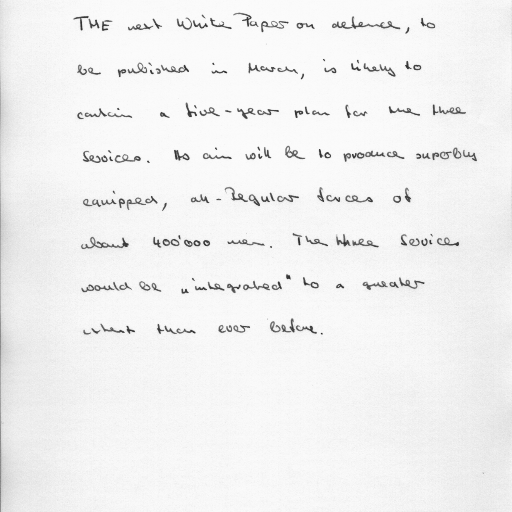 THE next White Paper on defence, to
be published in March, is likely to
contain a five-year plan for the three
Services. Its aim will be to produce superbly
equipped, all-Regular forces of
about 400'000 men. The three Services
would be "integrated" to a greater
extent than ever before.